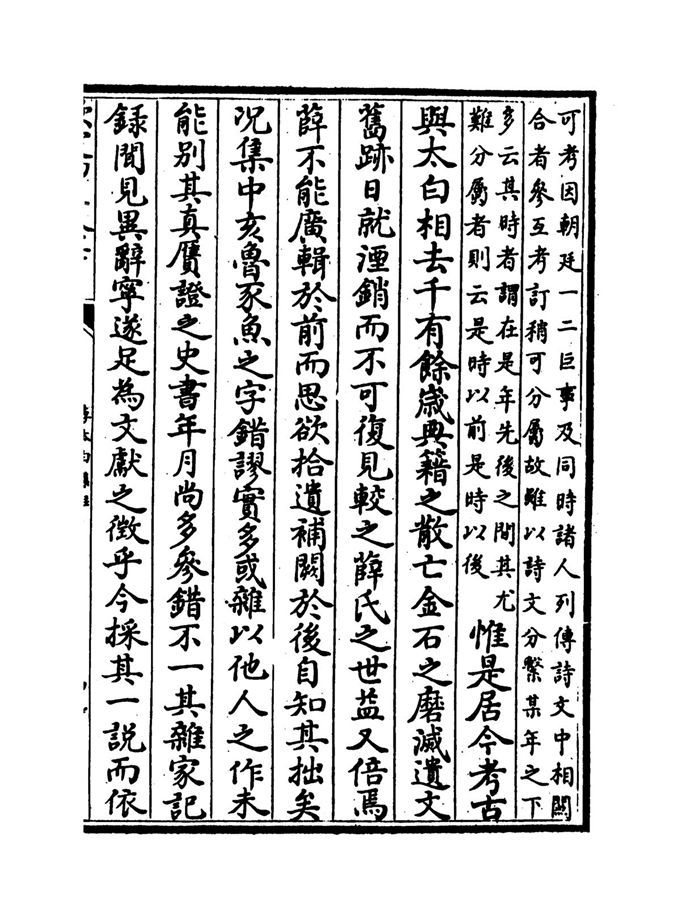 可考因朝廷一二巨事及同時諸人列傳詩文中相關
合者參互考訂稍可分屬故雖以詩文分繫某年之下
多云其時者謂在是年先後之間其尤
難分屬者則云是時以前是時以後
惟是居今考古
與太白相去千有餘歳典籍之散亡金石之磨滅遺文
舊跡日就湮銷而不可復見較之薛氏之世益又倍焉
薛不能廣輯於前而思欲拾遺補闕於後自知其拙矣
况集中亥魯豕魚之字錯謬實多或雜以他人之作未
能别其真贋證之史書年月尚多參錯不一其雜家記
録聞見異辭寧遂足為文獻之徴乎今採其一説而依
李太白集註